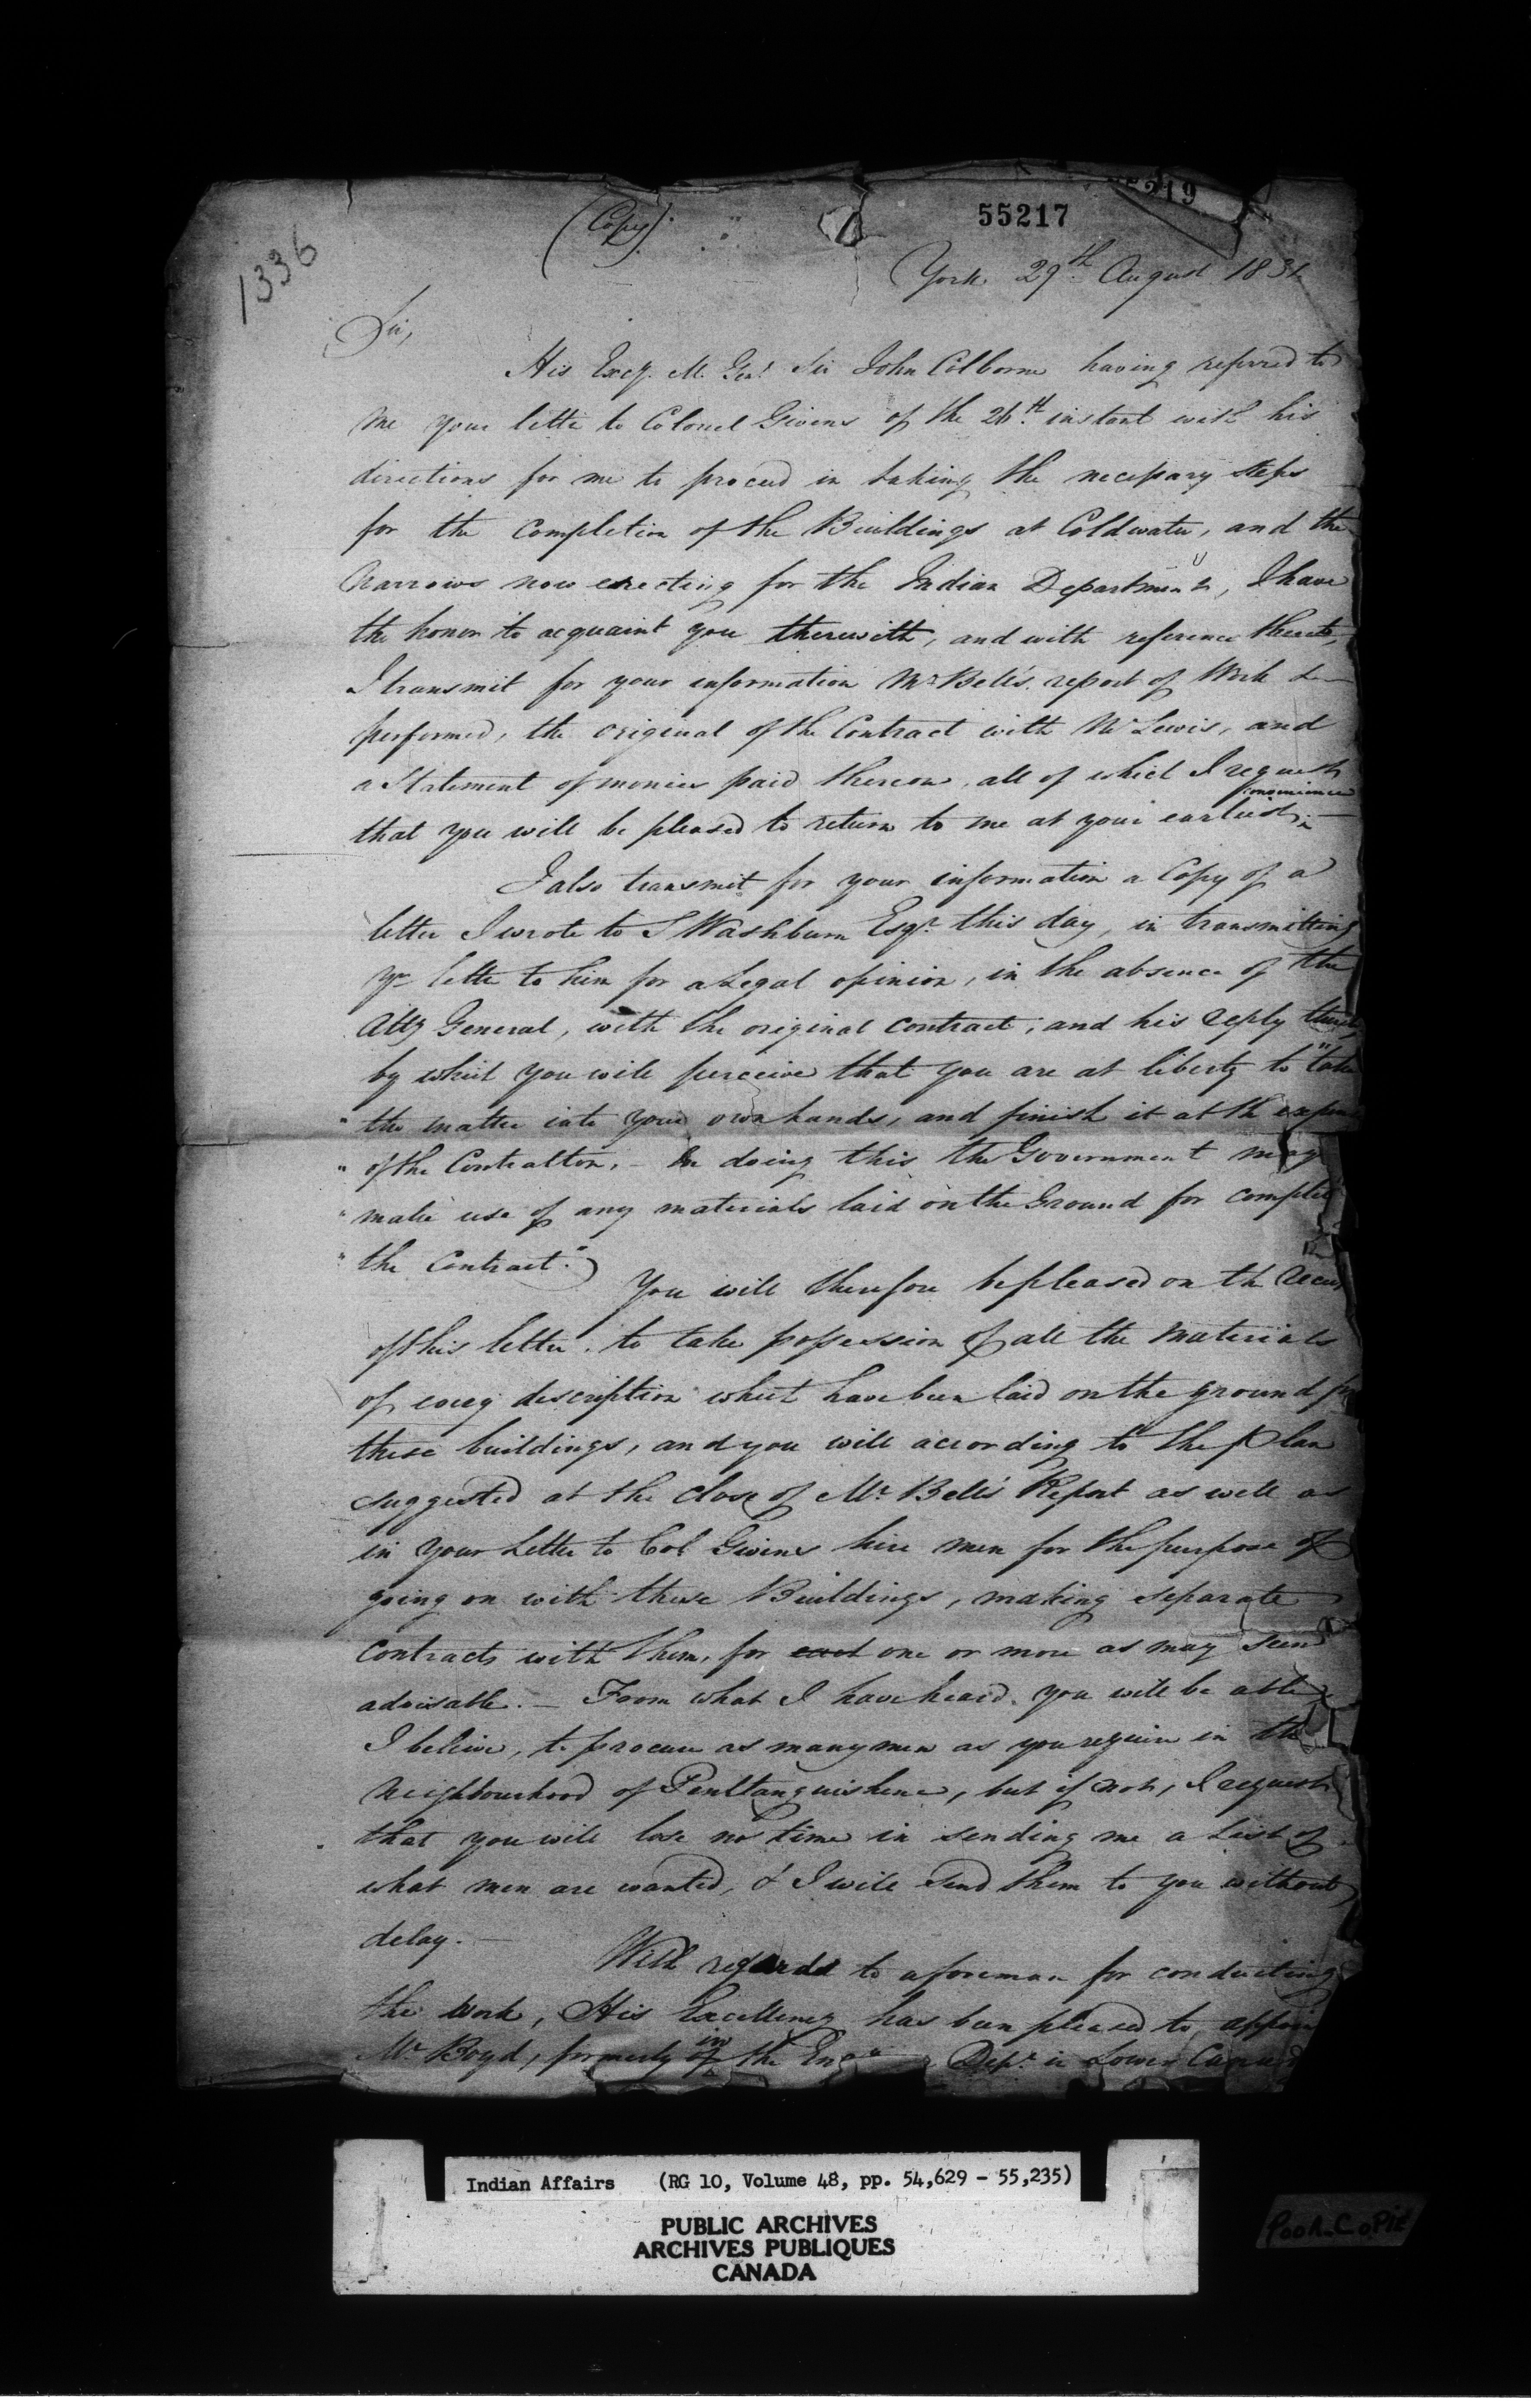 55219
55217
(Copy).
1336
York 29th August 1831
Sir,
His Excy. M. Genl. Sir John Colborne having referred to
me your letter to Colonel Givens of the 26th. instant with his
directions for me to proceed in taking the necessary steps
for the completion of the Buildings at Coldwater, and the
Narrows now erecting for the Indian Department, I have
the honor to acquaint you therewith, and with reference thereto,
I transmit for your information Mr Bell's report of Work
performed, the original of the Contract with Mr Lewis, and
a Statement of monies paid thereon, all of which I request
that you will be pleased to return to me at your earliest convenience
I also transmit for your information a Copy of a
letter I wrote to S Washburn Esqr. this day, in transmitting
yr letter to him for a Legal opinion, in the absence of the
Atty General, with the original contract; and his reply thereto
by which you will perceive that you are at liberty to "take
" the matter into your own hands, and finish it at the expense
" of the Contractor, - In doing this the Government may
" make use of any materials laid on the Ground for
" the Contract.")
You will therefore be pleased on the
of this letter, to take possession of all the materials
of every description which have been laid on the ground for
these buildings, and you will according to the plan
suggested at the close of Mr. Bell's Report as well as
in your Letter to Col Givens hire men for the purpose of
going on with these Buildings, making separate
contracts with them, for each one or more as may seem
advisable. - From what I have heard, you will be able
I believe, to procure as many men as you require in the
neighbourhood of Penitanguishene, but if not, I request
that you will lose no time in sending me a List of
what men are wanted, & I will send them to you without
delay. -
With regards to a foreman for conducting
the Work, His Excellency has been pleased to appoint
Mr Boyd, formerly of in the Dept. in Lower Canada
Indian Affairs (RG 10, Volume 48, pp. 54,629 - 55,235)
PUBLIC ARCHIVES
ARCHIVES PUBLIQUES
CANADA
POOR COPIE